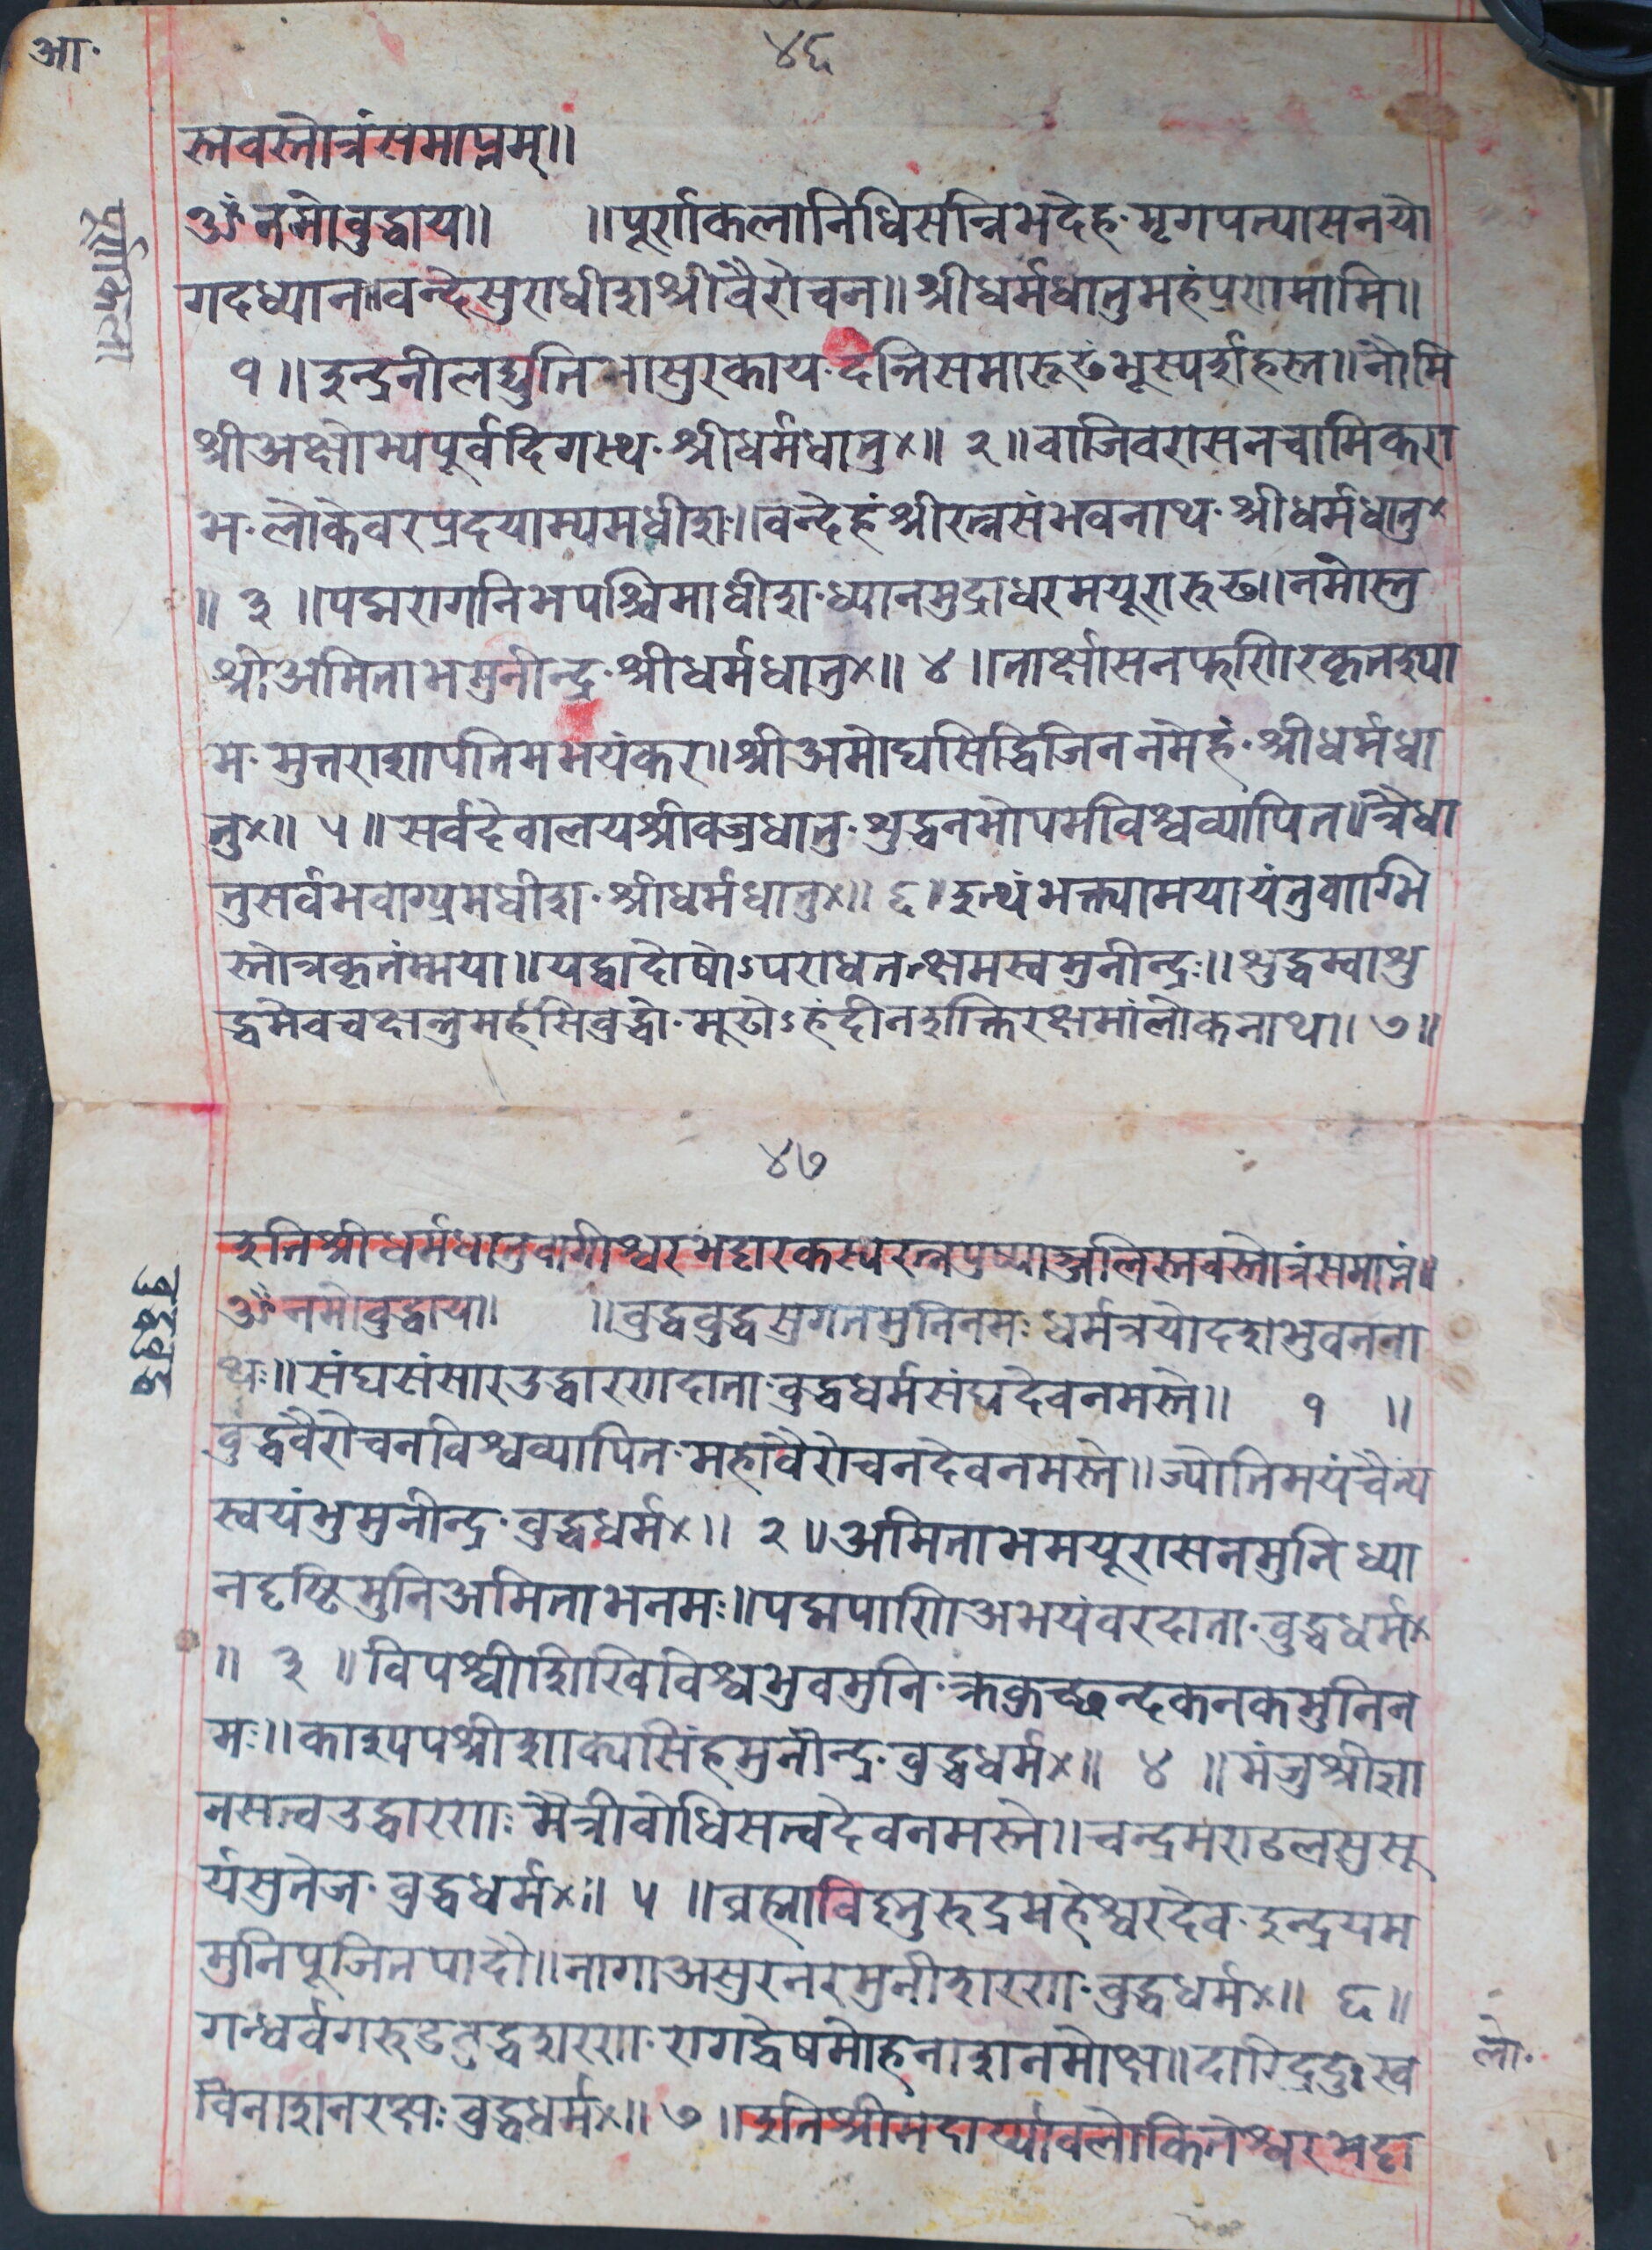 आ.
४६
स्तवस्तोत्रंसमाप्तम्॥
ॐनमोबुद्धाय॥ ॥पूर्णकलानिधिसन्निभदेह·मृगपत्यासनयो
गदध्यान॥वन्देसुराधीशश्रीवैरोचन॥श्रीधर्मधातुमहंप्रणमामि॥
१॥इन्द्रनीलद्युतिभासुरकाय·दन्तिसमारूढंभूस्पर्शहस्त॥नौमि
श्रीअक्षोभ्यपूर्वदिगस्थ·श्रीधर्मधातु×॥ २ ॥वाजिवरासनचामिकरा
भ·लोकेवरप्रदयाम्यमधीश॥वन्देहंश्रीरत्नसंभवनाथ·श्रीधर्मधातु×
॥ ३ ॥पद्मरागनिभपश्चिमाधीश·ध्यानमुद्राधरमयूरारुढ॥नमोस्तु
श्रीअमिताभमुनीन्द्र·श्रीधर्मधातु×॥ ४ ॥तार्क्षासनफणिरकृतश्या
म·मुत्तराशापतिमभयंकर॥श्रीअमोघसिद्धिजिननमेहं·श्रीधर्मधा
तु×॥ ५ ॥सर्वदेवालयश्रीवज्रधातु·शुद्धनभोपमविश्वव्यापित॥त्रैधा
तुसर्वभवाग्प्रमधीश·श्रीधर्मधातु×॥ ६॥इत्थंभक्त्यामयायंतुवाग्भि
स्तोत्रकृतंम्मया॥यद्वादोषोऽपराधतत्क्षमस्वमुनीन्द्रः॥शुद्धम्वाशु
द्धमेवचक्षान्तुमर्हसिबुद्धो·मूढोऽहंदीनशक्तिरक्षमांलोकनाथ॥ ७॥
पूर्णकला
४७
इतिश्रीधर्मधातुवागीश्वरभट्टारकस्यरत्नपुष्पाञ्जलिस्तवस्तोत्रंसमाप्तं॥
ॐनमोबुद्धाय॥ ॥बुद्धबुद्धसुगतमुनिनमः धर्मत्रयोदशभुवनना
थः॥संघसंसारउद्धारणदाता·बुद्धधर्मसंघदेवनमस्ते॥ १ ॥
बुद्धवैरोचनविश्वव्यापित·महावैरोचनदेवनमस्ते॥ज्योतिमयंचैत्य
स्वयंभुमुनीन्द्र·बुद्धधर्म×॥ २॥अमिताभमयूरासनमुनिध्या
नदृष्टिमुनिअमिताभनमः॥पद्मपाणिअभयंवरदाता·बुद्धधर्म×
॥ ३ ॥विपश्वीशिखिविश्वभुवमुनि·क्रकुच्छन्दकनकमुनिन
मः॥काश्यपश्रीशाक्यसिंहमुनीन्द्र·बुद्धधर्म×॥ ४ ॥मंजुश्रीज्ञा
नसत्वउद्धारणः मैत्रीबोधिसत्वदेवनमस्ते॥चन्द्रमण्डलसुसू
र्यसुतेज·बुद्धधर्म×॥ ५ ॥ब्रह्माविष्नुरुद्रमहेश्वरदेव·इन्द्रयम
मुनिपूजितपादौ॥नागाअसुरनरमुनीशरण·बुद्धधर्म×॥ ६॥
गन्धर्वगरुडबुद्धशरण·रागद्वेषमोहनाशनमोक्ष॥दारिद्रदुःख
विनाशनरक्षः बुद्धधर्म×॥ ७॥इतिश्रीमदार्य्यावलोकितेश्वरभट्टा
बुद्धबुद्ध
लो.